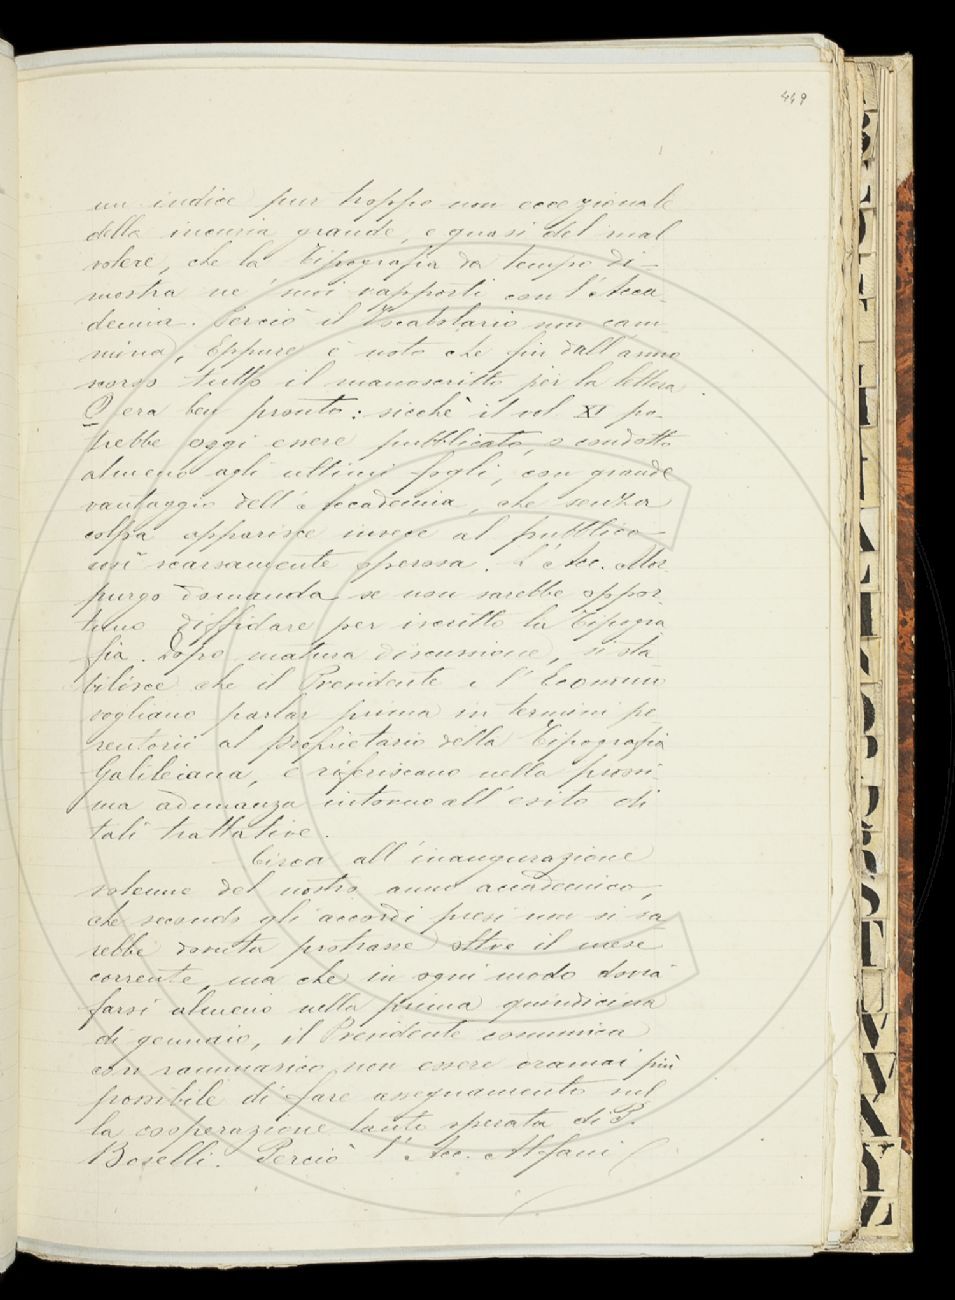 449
un indice pur troppo non eccezionale
della incuria grande, e quasi del mal
volere, che la Tipografia da tempo di-
mostra ne' suoi rapporti con l'Acca-
demia. Perciò il Vocabolario non cam-
mina, Eppure è noto che fin dall'anno
scorso tutto il manoscritto per la lettera
O era ben pronto: sicchè il vol XI po-
trebbe oggi essere pubblicato, o condotto
almeno agli ultimi fogli, con grande
vantaggio dell'Accademia, che senza
colpa apparisce invece al pubblico
così scarsamente operosa. L'Acc. Mor-
purgo domanda se non sarebbe oppor-
tuno diffidare per iscritto la Tipogra
fia. Dopo matura discussione, si sta
bilisce che il Presidente e l'Economo
vogliano parlar prima in termini pe-
rentorii al proprietario della Tipografia
Galileiana, e riferiscano nella prossi-
ma adunanza intorno all'esito di
tali trattative.
Circa all'inaugurazione
solenne del nostro anno accademico,
che secondo gli accordi presi non si sa
rebbe dovuta protrarre oltre il mese
corrente, ma che in ogni modo dovrà
farsi almeno nella prima quindicina
di gennaio, il Presidente comunica
con rammarico non essere oramai più
possibile di fare assegnamento sul
la cooperazione tanto sperata di P.
Boselli. Perciò l'Acc. Alfani
B
E
D
F
H
I
L
N
O
P
Q
R
S
T
U
V
W
X
Y
Z